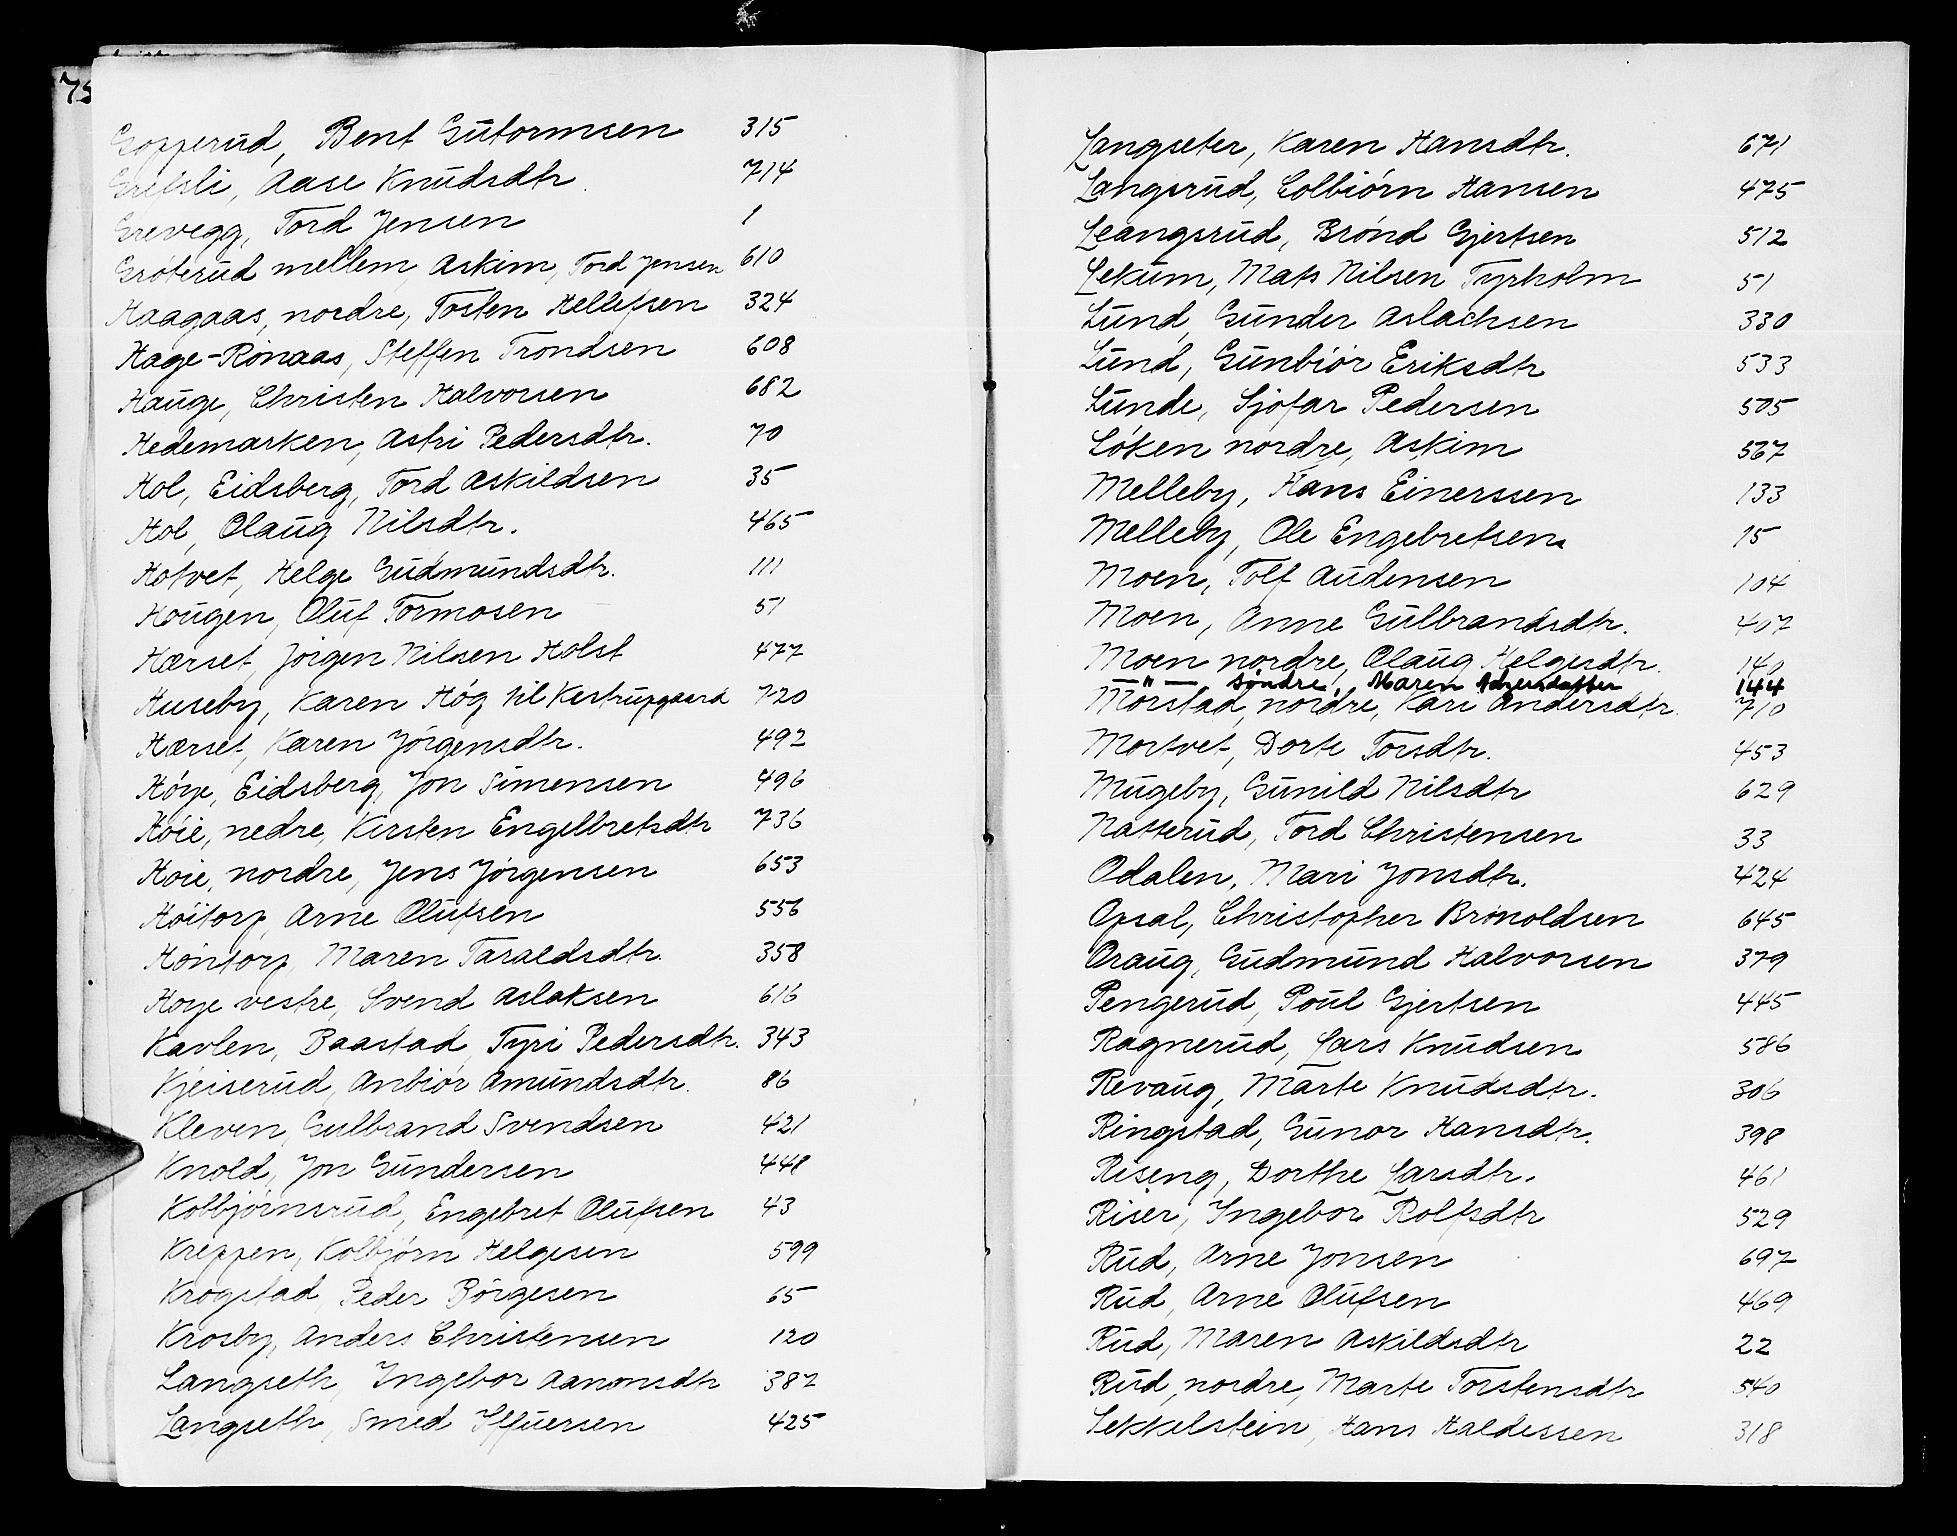 75
Gopperud, Bent Gutormsen 315
Grefsli, Aase Knudsdtr. 714
Grevegg, Tord Jensen 1
Gröterud mellem, Askim, Tord Jensen 610
Haagaas, nordre, Tosten Hellefsen 324
Hage-Rönaas, Steffen Trondsen 608
Hauge, Christen Halvorsen 682
Hedemarken, Astri Pedersdtr. 70
Hol, Eidsberg, Tord Askildsen 35
Hol, Olaug Nilsdtr. 465
Hotvet, Helge Gudmundsdtr. 111
Hougen, Oluf Tormosen 51
Hærset, Jörgen Nilsen Holst 477
Huseby, Karen Hög til Kestrupgaard 720
Hærset, Karen Jörgensdtr. 492
Höye, Eidsberg, Jon Simensen 496
Höie, nedre, Kirsten Engelbretsdtr 736
Höie, nordre, Jens Jörgensen 653
Höitorp, Arne Olufsen 556
Höntorp, Maren Tasaldsdtr. 358
Höye vestre, Svend Aslaksen 616
Kavlen, Baastad, Tyri Pedersdtr. 343
Kjeiserud, Anbiör Amundsdtr. 86
Kleven, Gulbrand Svendsen 421
Knold, Jon Gundersen 448
Kolbjörnsrud, Engebret Olufsen 43
Kreppen, Kolbjörn Helgesen 599
Krogstad, Peder Börgesen 65
Krosby, Anders Christensen 120
Langseth, Ingebor Aanonsdtr 387
Langseth, Smed Iffuersen 425
Langseter, Karen Hansdtr. 671
Langsrud, Colbiörn Hansen 475
Leangsrud, Brönd Gjertsen 512
Lekum, Mats Nilsen Tyrholm 51
Lund, Gunder Aslachsen 330
Lund, Gunbiör Eriksdtr 533
Lunde, Sjöfar Pedersen 505
Löken nordre, Askim 567
Melleby, Hans Einerssen 133
Melleby, Ole Engebretsen. 15
Moen, Tolf Audensen 104
Moen, Anne Gulbrandsdtr. 407
Moen nordre, Olaug Helgesdtr. 140
—"— söndre, Maren 144
Mörstad, nordre, Kari Andersdtr. 710
Mortvet, Dorte Torsdtr. 453
Mugeby, Gunild Nilsdtr 629
Natterud, Tord Christensen 33
Odalen, Mari Jonsdtr. 424
Opsal, Christopher Brönoldsen 645
Oraug, Gudmund Halvorsen 379
Pengerud, Poul Gjertsen 445
Ragnerud, Lars Knudsen 586
Revaug, Marte Knudsdtr. 306
Ringstad, Gunor Hansdtr. 398
Riseng, Dorthe Larsdtr. 461
Riser, Ingebor Rolfsdtr 529
Rud, Arne Jonsen 697
Rud, Arne Olufsen 469
Rud, Maren Askildsdtr 22
Rud, nordre, Marte Torstensdtr 540
Sekkelstein, Hans Haldessen 318